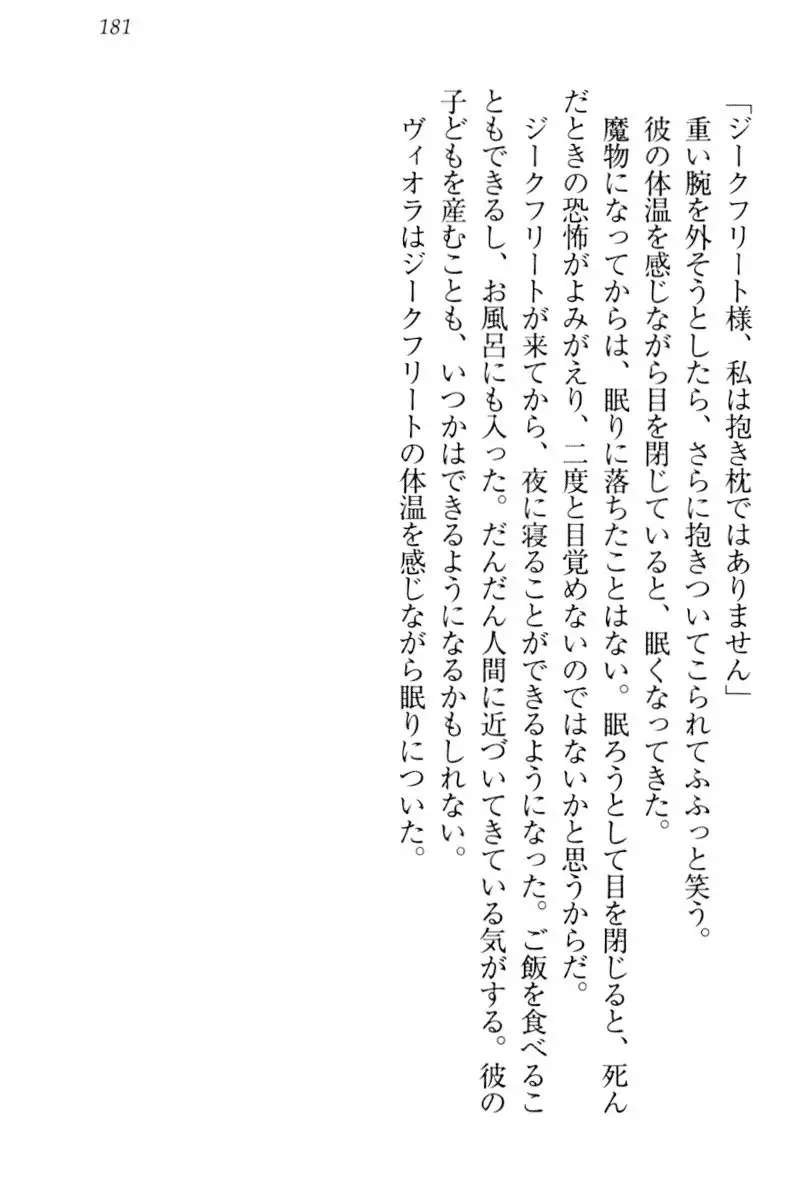 181
「ジークフリート様、私は抱き枕ではありません」
重い腕を外そうとしたら、さらに抱きついてこられてふふっと笑う。
彼の体温を感じながら目を閉じていると、眠くなってきた。
魔物になってからは、眠りに落ちたことはない。眠ろうとして目を閉じると、死ん
だときの恐怖がよみがえり、二度と目覚めないのではないかと思うからだ。
ジークフリートが来てから、夜に寝ることができるようになった。ご飯を食べるこ
ともできるし、お風呂にも入った。だんだん人間に近づいてきている気がする。彼の
子どもを産むことも、いつかはできるようになるかもしれない。
ヴィオラはジークフリートの体温を感じながら眠りについた。